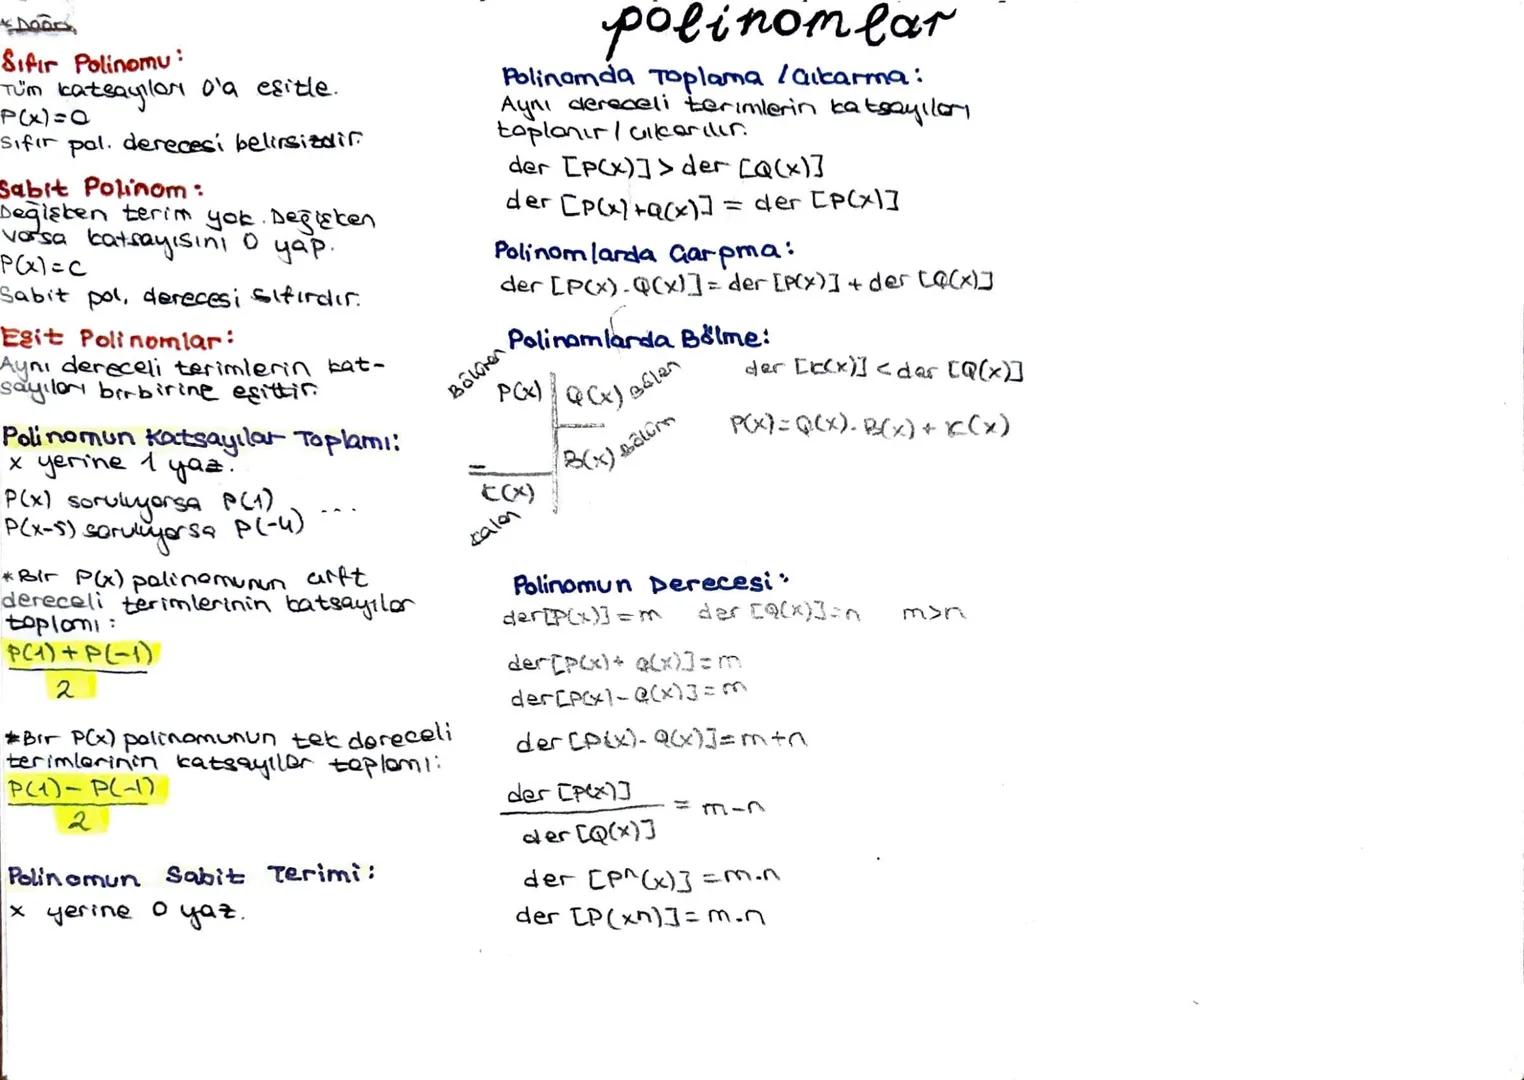 polinomlar
Sıfır Polinomu:
Tüm katsayıları 0'a eşitle.
P(x)=0
Sıfır pol. derecesi belirsizdir.
Sabit Polinom:
Değişken terim yok. Değişken
varsa katsayısını 0 yap.
P(x)=c
Sabit pol. derecesi sıfırdır.
Eşit Polinomlar:
Aynı dereceli terimlerin kat-
sayıları birbirine eşittir.
Polinomun Katsayılar Toplamı:
x yerine 1 yaz.
P(x) soruluyorsa P(1)
P(x-5) soruluyorsa P(-4) ...
*Bir P(x) polinomunun çift
dereceli terimlerinin katsayılar
toplamı:
P(1)+P(-1)
2
*Bir P(x) polinomunun tek dereceli
terimlerinin katsayılar toplamı:
P(1)-P(-1)
2
Polinomun Sabit Terimi:
x yerine 0 yaz.
Polinomda Toplama / Çıkarma:
Aynı dereceli terimlerin katsayıları
toplanır / çıkarılır.
der [P(x)] > der [Q(x)]
der [P(x)+Q(x)] = der [P(x)]
Polinomlarda Çarpma:
der [P(x).Q(x)] = der [P(x)] + der [Q(x)]
Polinomlarda Bölme:
Bölünen P(x) Q(x) Bölen
B(x) Bölüm
K(x)
kalan
der [K(x)] < der [Q(x)]
P(x)=Q(x).B(x)+K(x)
Polinomun Derecesi:
der[P(x)]=m der [Q(x)]=n m>n
der[P(x)+Q(x)]=m
der[P(x)-Q(x)]=m
der [P(x).Q(x)]=m+n
der [P(x)]
= m-n
der [Q(x)]
der [Pⁿ(x)] =m.n
der [P(xn)]=m.n